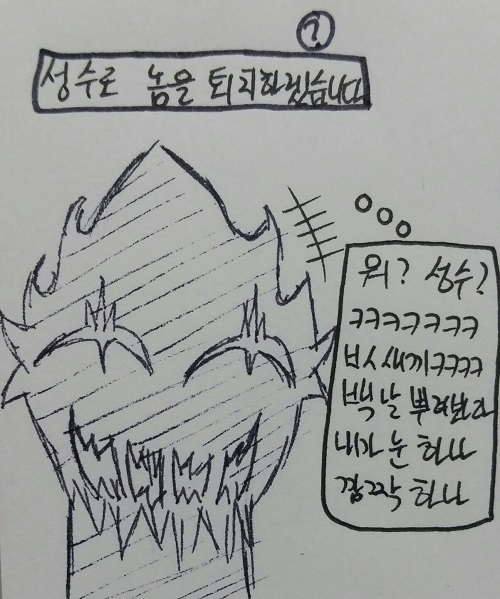 ?
성수로 놈을 퇴치하겠습니다
뭐? 성수?
ㅋㅋㅋㅋㅋㅋㅋ
ㅂㅅ새끼ㅋㅋㅋㅋ
백날 뿌려봐라
내가 눈 하나
깜짝 하나